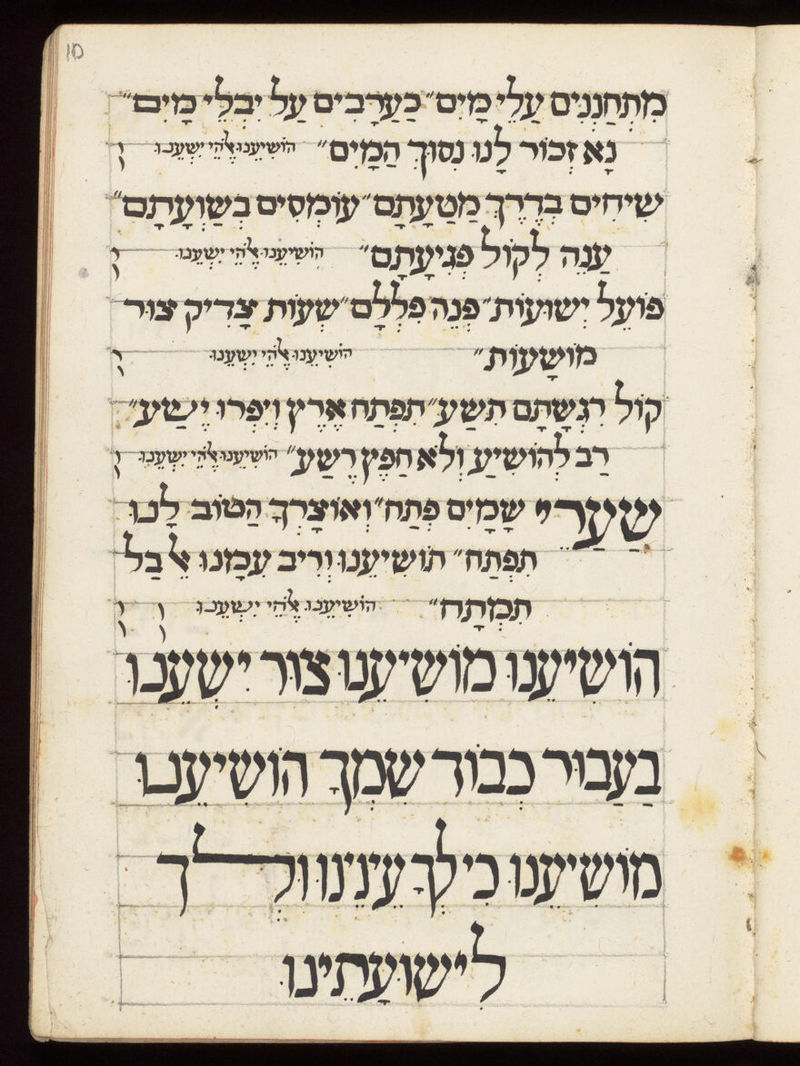 10
מִתְחַנְנִים עֲלֵי מָיִם״ כַּעֲרָבִים עַל יִבְלֵי מָיִם״
נָא זְכוֹר לָנוּ נִסּוּךְ הַמָּיִם״ הוֹשִׁיעֵנוּ אֱלֹהֵי יִשְׁעֵנוּ
שִׂיחִים בְּדֶרֶךְ מַטָּעָתָם״ עוֹמְסִים בְּשַׁוְעָתָם״
עֲנֵה לְקוֹל פְּגִיעָתָם״ הוֹשִׁיעֵנוּ אֱלֹהֵי יִשְׁעֵנוּ
פּוֹעֵל יְשׁוּעוֹת״ פְּנֵה פִלְלָם״ שְׁעוֹת צַדִּיק צוּר
מוֹשָׁעוֹת״ הוֹשִׁיעֵנוּ אֱלֹהֵי יִשְׁעֵנוּ
קוֹל רִגְשָׁתָם תִּשַׁע״ תִּפְתַּח אֶרֶץ וְיִפְרוּ יֶשַׁע״
רַב לְהוֹשִׁיעַ וְלֹא חָפֵץ רֶשַׁע״ הוֹשִׁיעֵנוּ אֱלֹהֵי יִשְׁעֵנוּ
שַׁעֲרֵי שָׁמַיִם פְּתַח״ וְאוֹצָרְךָ הַטּוֹב לָנוּ
תִפְתַּח״ תּוֹשִׁיעֵנוּ וְרִיב עִמָּנוּ אַל בַּל
תִּמְתַּח״ הוֹשִׁיעֵנוּ אֱלֹהֵי יִשְׁעֵנוּ
הוֹשִׁיעֵנוּ מוֹשִׁיעֵנוּ צוּר יִשְׁעֵנוּ
בַּעֲבוּר כְּבוֹד שִׁמְךָ הוֹשִׁיעֵנוּ
מוֹשִׁיעֵנוּ כִּי לְךָ עֵינֵינוּ וּלְךָ
לִישׁוּעָתֵינוּ